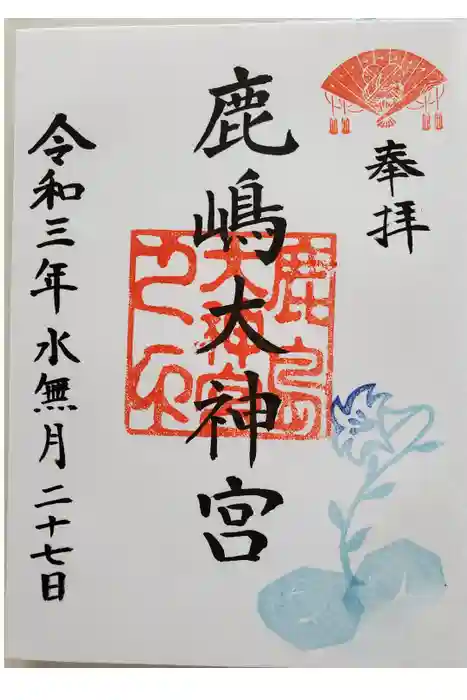 奉拝
鹿嶋大神宮
鹿島
大神宮
之印
令和三年水無月二十七日